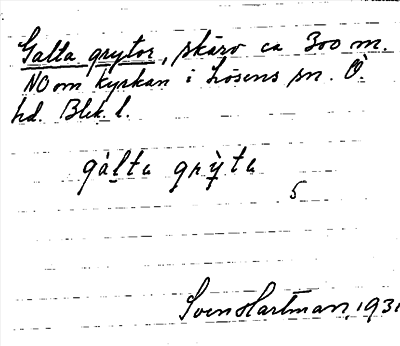 Galta grytor, skärv ca 300 m.
NO om kyrkan i Lösens sn. Ö.
hd. Blek. l.
gàlta grỳta
5
Sven Hartman, 1931